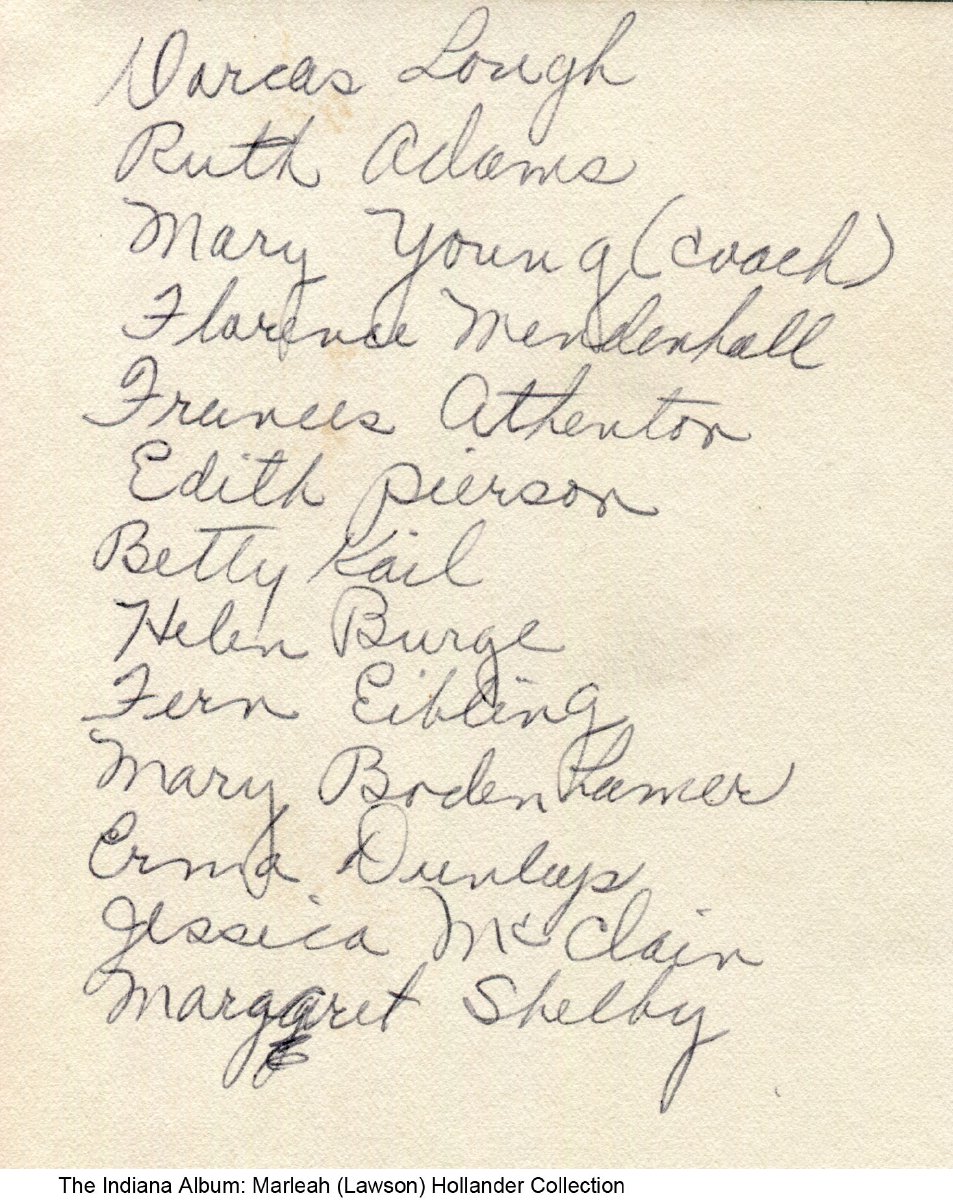 Dorcas Lough
Ruth Adams
Mary Young (coach)
Florence Mendenhall
Frances Athenton
Edith Pierson
Betty Kail
Helen Burge
Fern Eibling
Mary Bodenhamer
Erma Dunlap
Jessica McClain
Margaret Shelby
The Indiana Album: Marleah (Lawson) Hollander Collection